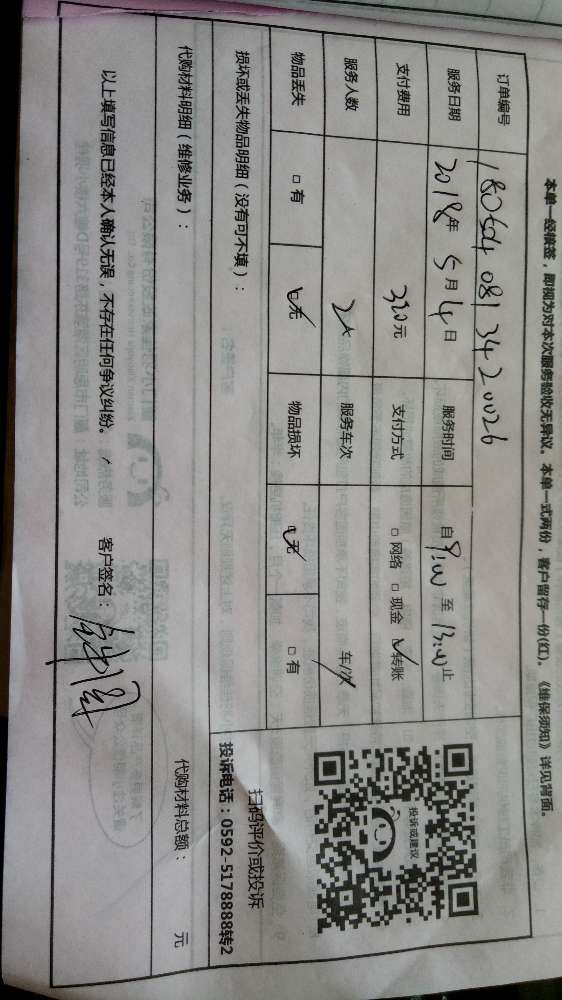 本单一经核签，即视为对本次服务验收无异议。本单一式两份，客户留存一份(红)。《维保须知》详见背面。
订单编号 180504081342 0026
服务日期 2018年 5月4日 服务时间 自 9:00 至 13:00 止
支付费用 320元 支付方式 □ 网络 □ 现金 ☑ 转账
服务人数 2人 服务车次 车/次
物品丢失 □ 有 ☑ 无 物品损坏 ☑ 无 □ 有
投诉或建议
扫码评价或投诉
投诉电话：0592-5178888转2
损坏或丢失物品明细（没有可不填）：
代购材料明细（维修业务）： 代购材料总额： 元
以上填写信息已经本人确认无误，不存在任何争议纠纷。 客户签名：